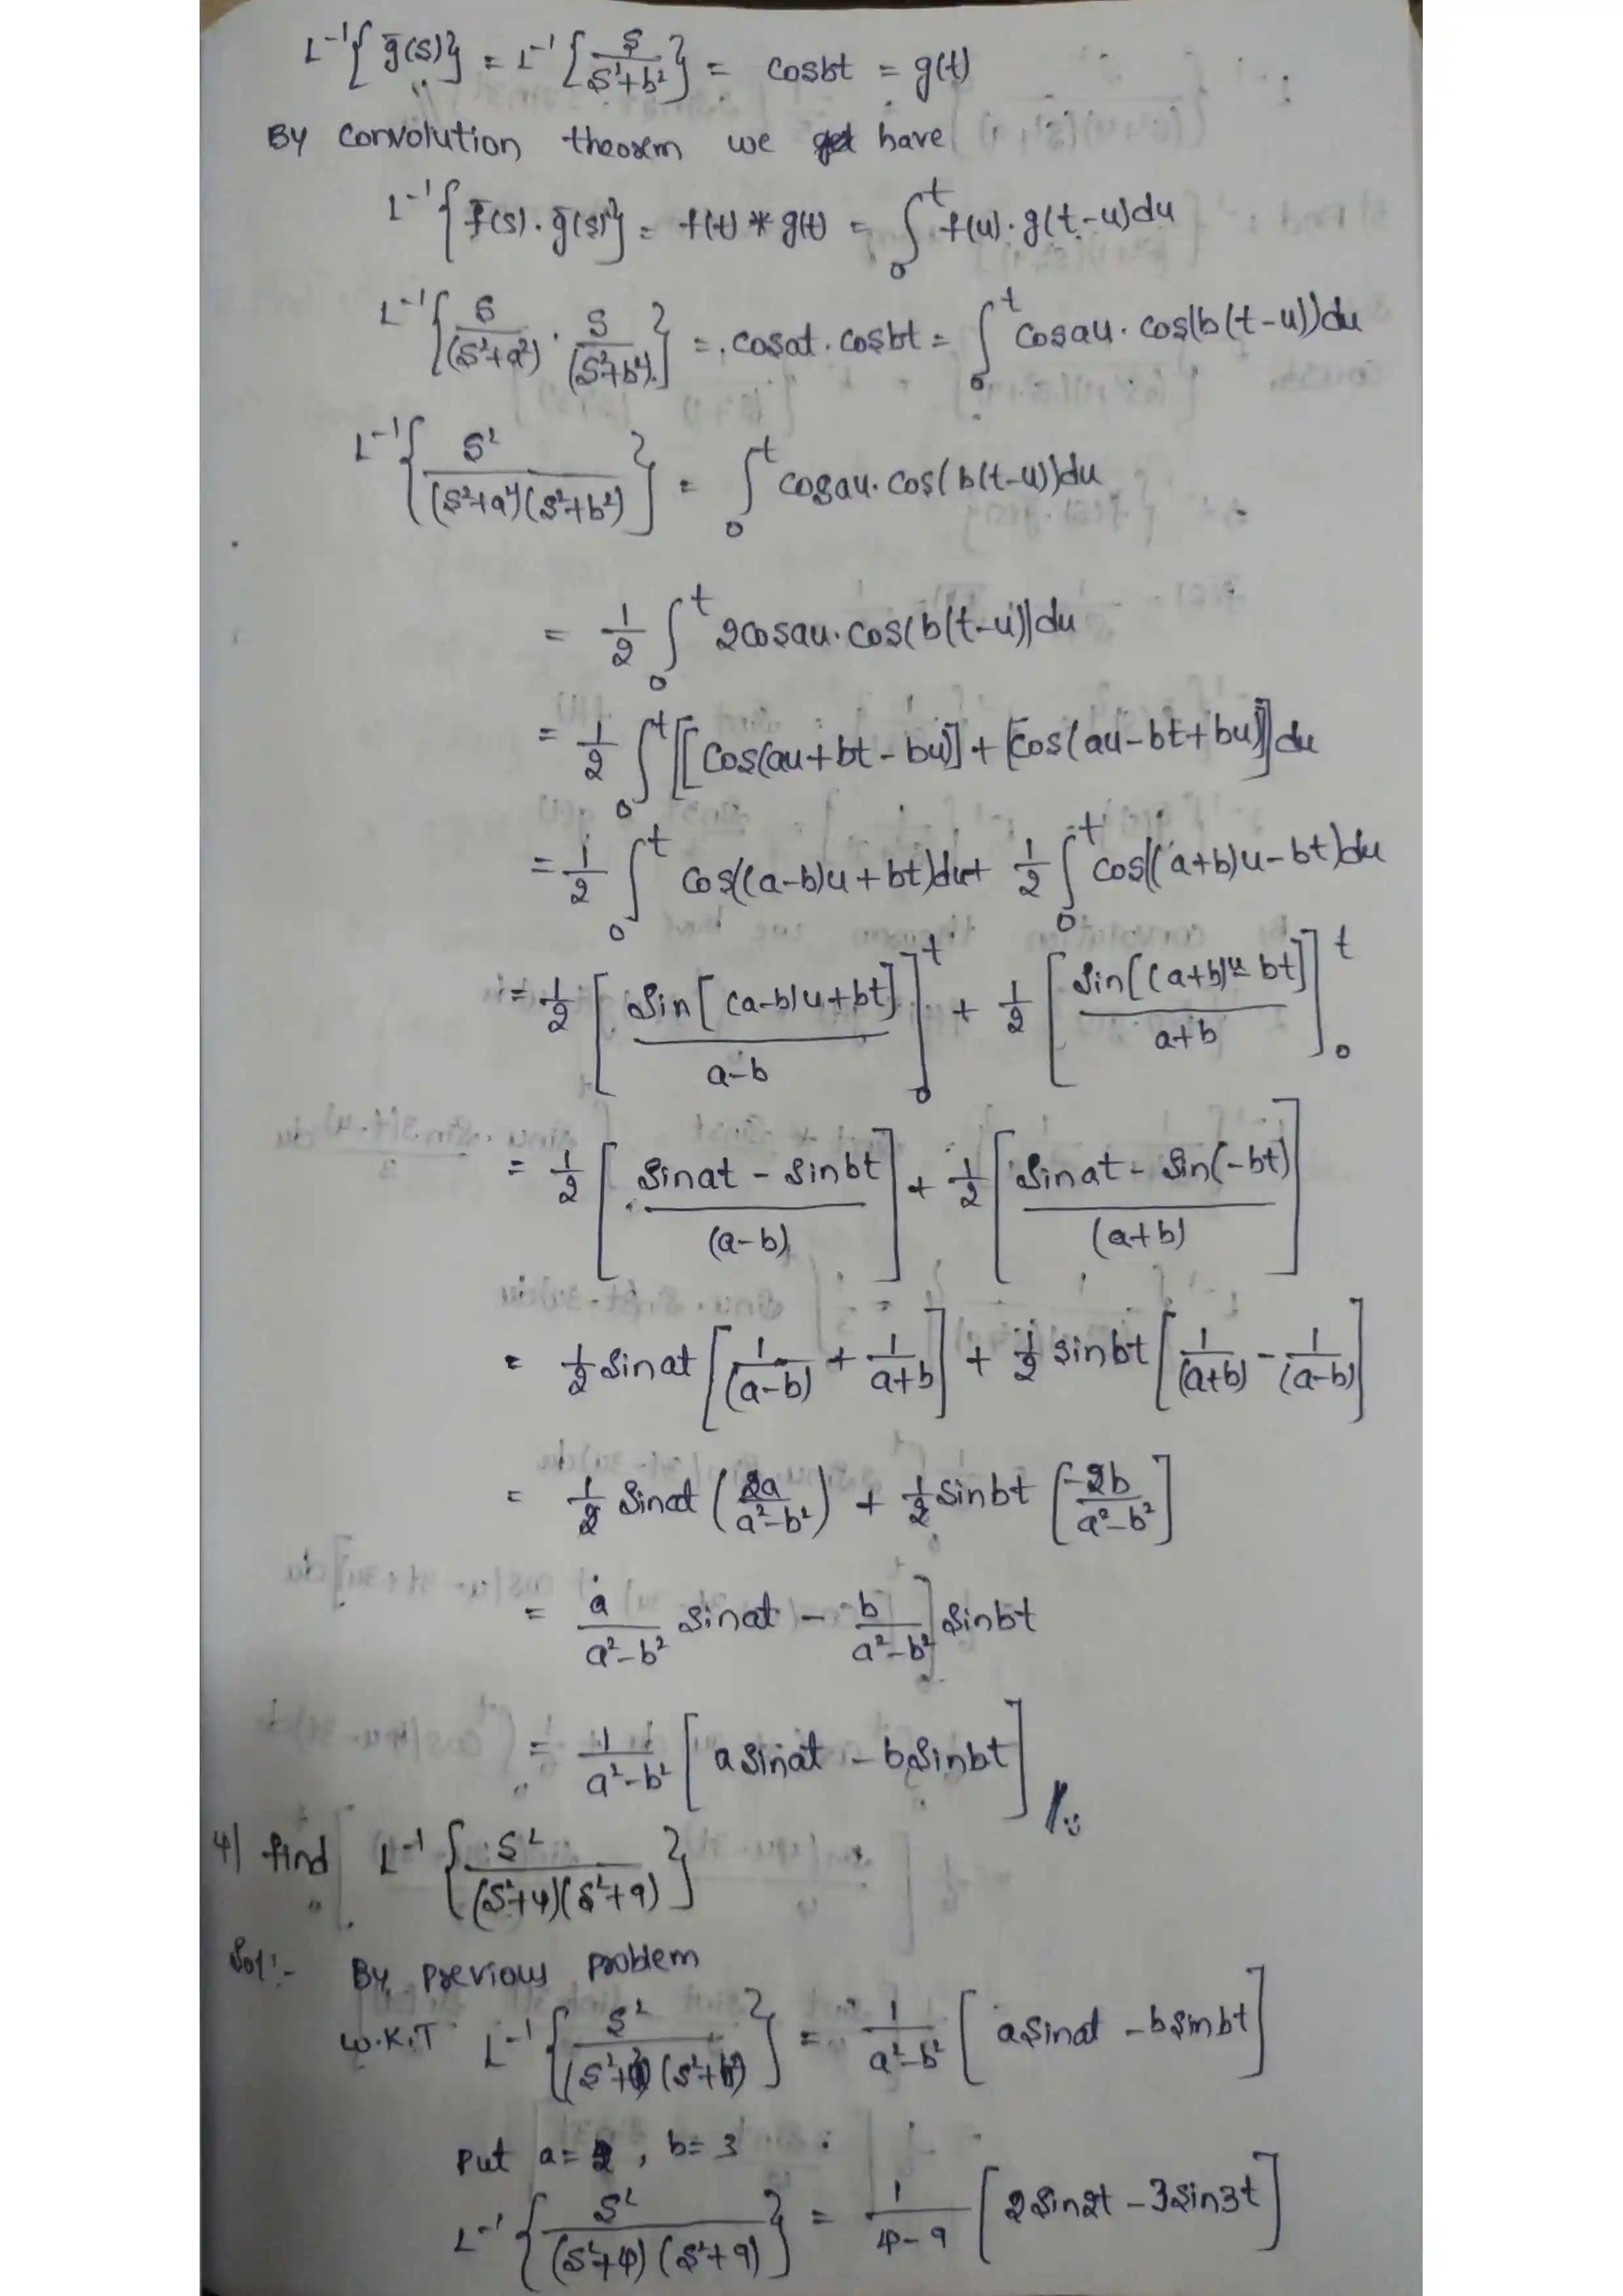 L⁻¹{g̅(s)} = L⁻¹{s/(s²+b²)} = cosbt = g(t)
By convolution theorem we have
L⁻¹{f̅(s).g̅(s)} = f(t) * g(t) = ∫₀ᵗ f(u).g(t-u)du
L⁻¹{s/(s²+a²) . s/(s²+b²).} = .cosat.cosbt = ∫₀ᵗ cosau.cos(b(t-u))du
L⁻¹{s²/((s²+a²)(s²+b²))} = ∫₀ᵗ cosau.cos(b(t-u))du
= 1/2 ∫₀ᵗ 2cosau.cos(b(t-u))du
= 1/2 ∫₀ᵗ [[cos(au+bt-bu)] + [cos(au-bt+bu)]]du
= 1/2 ∫₀ᵗ cos((a-b)u+bt)du + 1/2 ∫₀ᵗ cos((a+b)u-bt)du
= 1/2 [sin[(a-b)u+bt]/(a-b)]₀ᵗ + 1/2 [sin[(a+b)u-bt]/(a+b)]₀ᵗ
= 1/2 [(sinat - sinbt)/(a-b)] + 1/2 [(sinat - sin(-bt))/(a+b)]
= 1/2 sinat [1/(a-b) + 1/(a+b)] + 1/2 sinbt [1/(a+b) - 1/(a-b)]
= 1/2 sinat (2a/(a²-b²)) + 1/2 sinbt [-2b/(a²-b²)]
= a/(a²-b²) sinat - b/(a²-b²)] sinbt
= 1/(a²-b²) [asinat - bsinbt] //
4) find L⁻¹{s²/((s²+4)(s²+9))}
Sol:- By previous problem
W.K.T L⁻¹{s²/((s²+a²)(s²+b²))} = 1/(a²-b²) [asinat - bsinbt]
Put a=2, b=3
L⁻¹{s²/((s²+4)(s²+9))} = 1/(4-9) [2sin2t - 3sin3t]